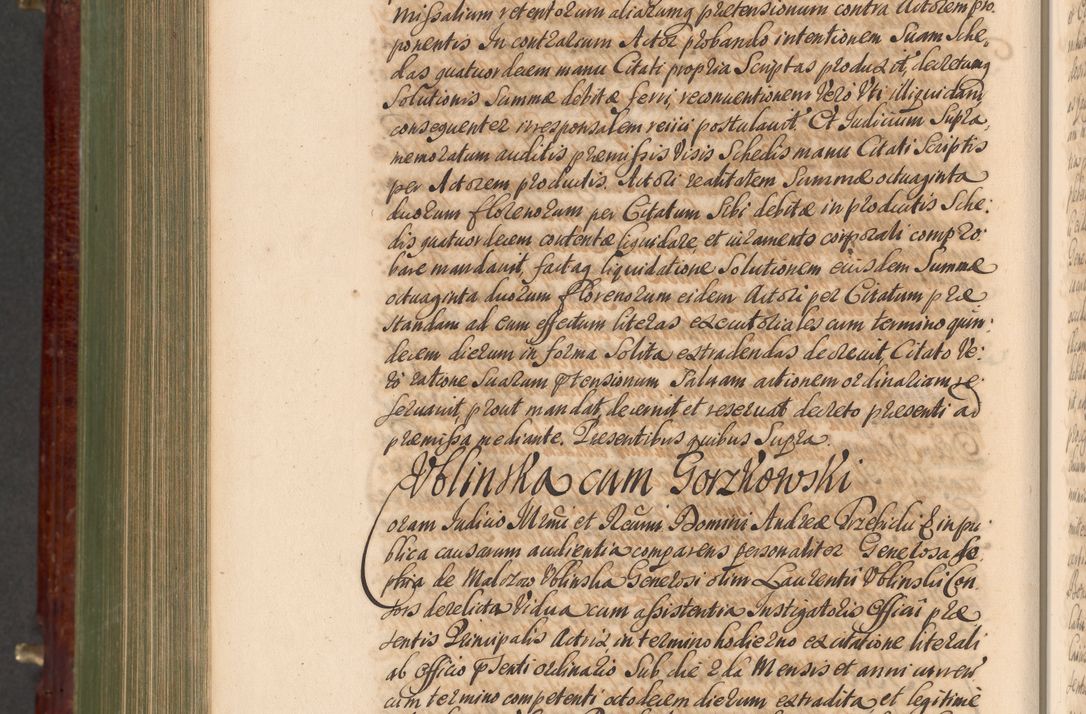 missalium retentorum aliarumq pretensionum contra Actorem pro
ponentis In contrarium Actor probando intentionem Suam Sche,
das quatuordecem manu Citati propria Scriptas produxit, decretumq
Solutionis Summæ debitæ ferri, reconuentionem Vero Vti illiquidam
consequenter irresponsalem reiici postulauit. Et Iudicium Supra,
memoratum auditis præmissis Visis Schedis manu Citati Scriptis
per Actorem productis. Actori realitatem Summæ octuaginta
duorum florenorum per Citatum Sibi debitæ in productis Sche:
dis quatuordecem contentæ liquidare, et iuramento corporali compro:
bare mandauit, factaq liquidatione Solutionem eiusdem Summæ
octuaginta duorum Florenorum eidem Actori per Citatum præ
standam ad cum effectum literas executoriales cum termino quin:
decem dierum in forma Solita extradendas decreuit, Citato Ve:
rò ratione Suarum ptensionum Saluam actionem ordinariam re:
seruauit, prout mandat, decernit et reseruat decreto præsenti ad
præmissa mediante. Præsentibus quibus Supra.
Vblinska cum Gorzkowski
oram Iudicio Illrmi et Reumi Domini Andreæ Przebidii E in pu:
blica causarum audientia comparens personaliter Generosa So
phia de Malozow Vblinska Generosi olim Laurentii Vblinski Con
sors derelicta Vidua cum assistentia Instigatoris Officii præ
sentis Principalis Actrix in termino hodierno ex citatione literali
ab Officio pſenti ordinario Sub die 2da Mensis et anni curren
cum termino competenti octodecem dierum extradita et legitimè